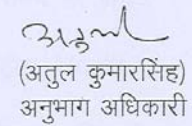 अतुल
(अतुल कुमारसिंह)
अनुभाग अधिकारी